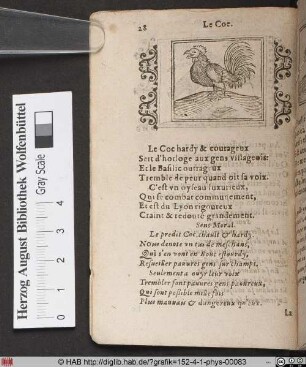 28 Le Coc.
Le Coc hardy & courageux
Sert d'horloge aux gens villageois:
Et le Basilic outrageux
Tremble de peur quand oit sa voix.
C'est vn oyseau luxurieux,
Qui se combat communement,
Et est du Lyon rigoureux
Craint & redouté grandement.
Sens Moral.
Le predit Coc chault & hardy,
Nous denote vn tas de meschans,
Qui s'en vont en bois
pauures gens sur champs,
Seulement a ouyr leur voix
Trembler font pauures gens paoureux,
Qui sont possible mille fois
Plus mauuais & dangereux
La
Herzog August Bibliothek Wolfenbüttel
Gray Scale
© HAB http://diglib.hab.de/?grafik=152-4-1-phys-00083